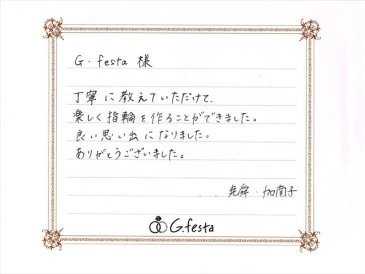 G.festa 様
丁寧に教えていただけて、
楽しく指輪を作ることができました。
良い思い出になりました。
ありがとうございました。
加南子
G.festa